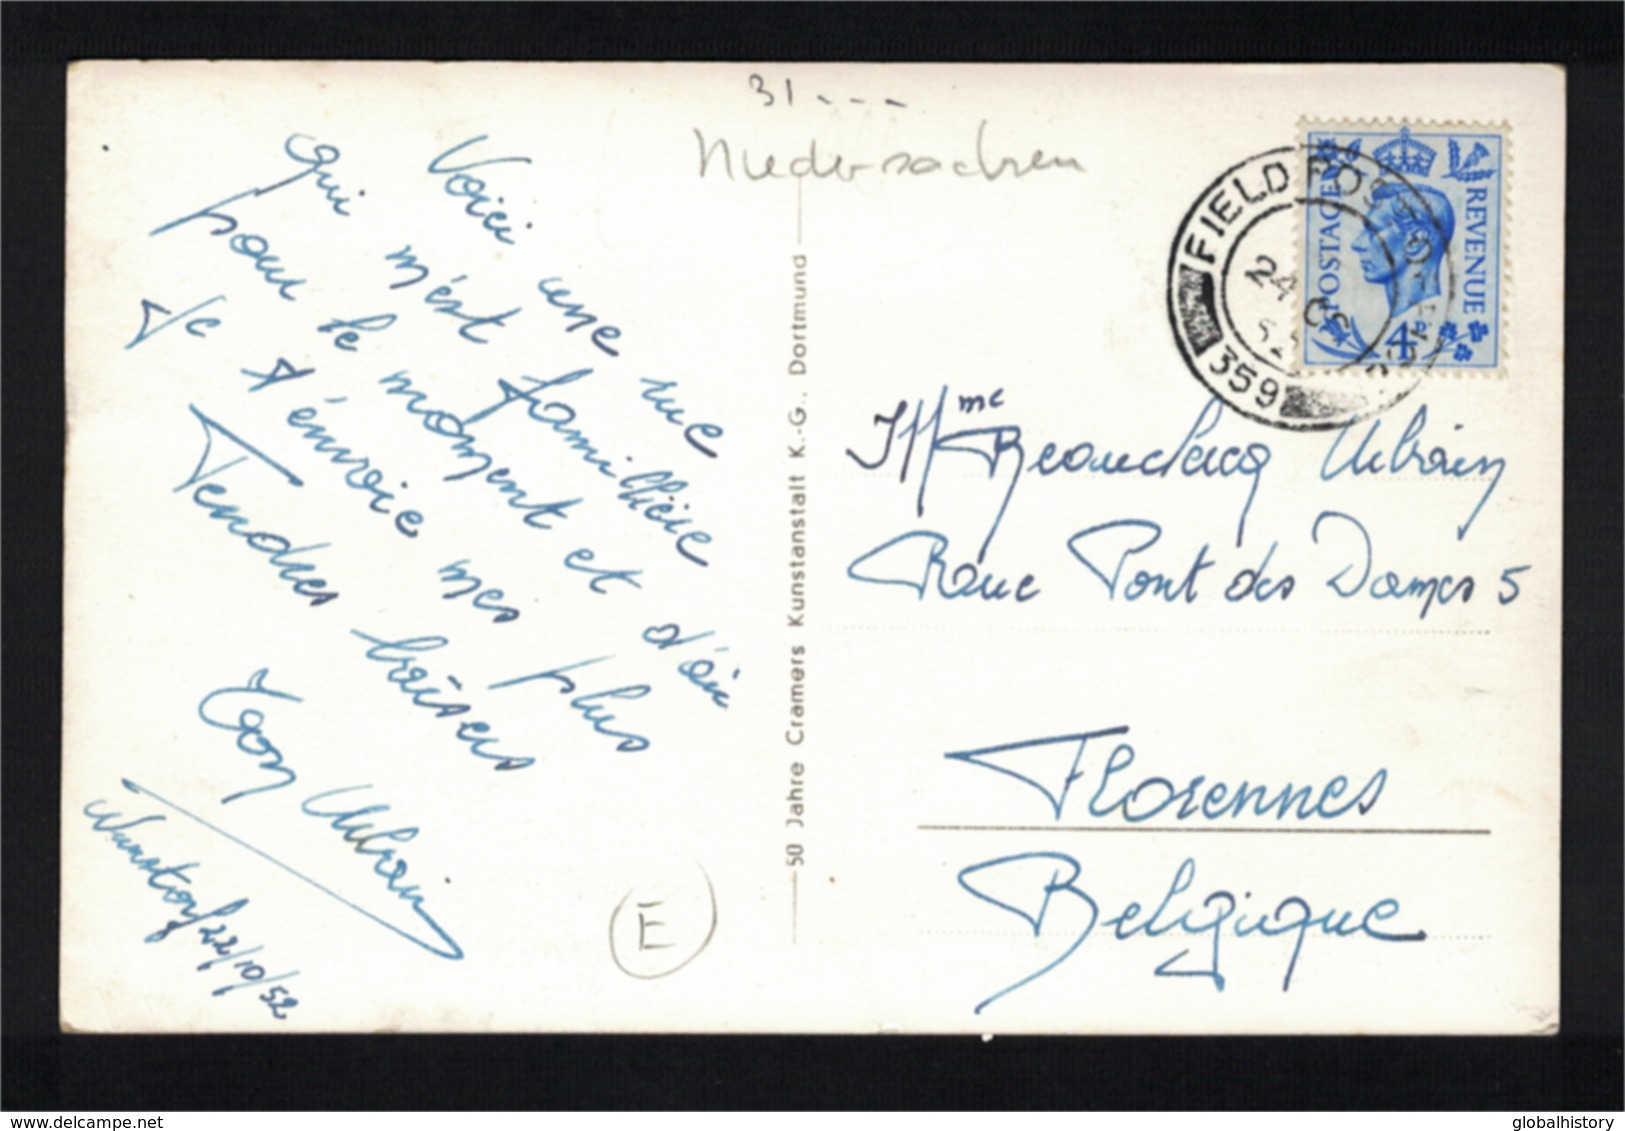 31---
Niedersachsen
Voici une rue
qui m'est familière
pour le moment et d'où
Je t'envoie mes plus
Tendres baisers
Ton Urbain
Wunstorf 22/10/52
E
50 Jahre Cramers Kunstanstalt K.-G., Dortmund
FIELD POST OFFICE
24 OC
52
359
POSTAGE REVENUE
4D
Mme Beauclercq Urbain
Rue Pont des Dames 5
Florennes
Belgique
globalhistory